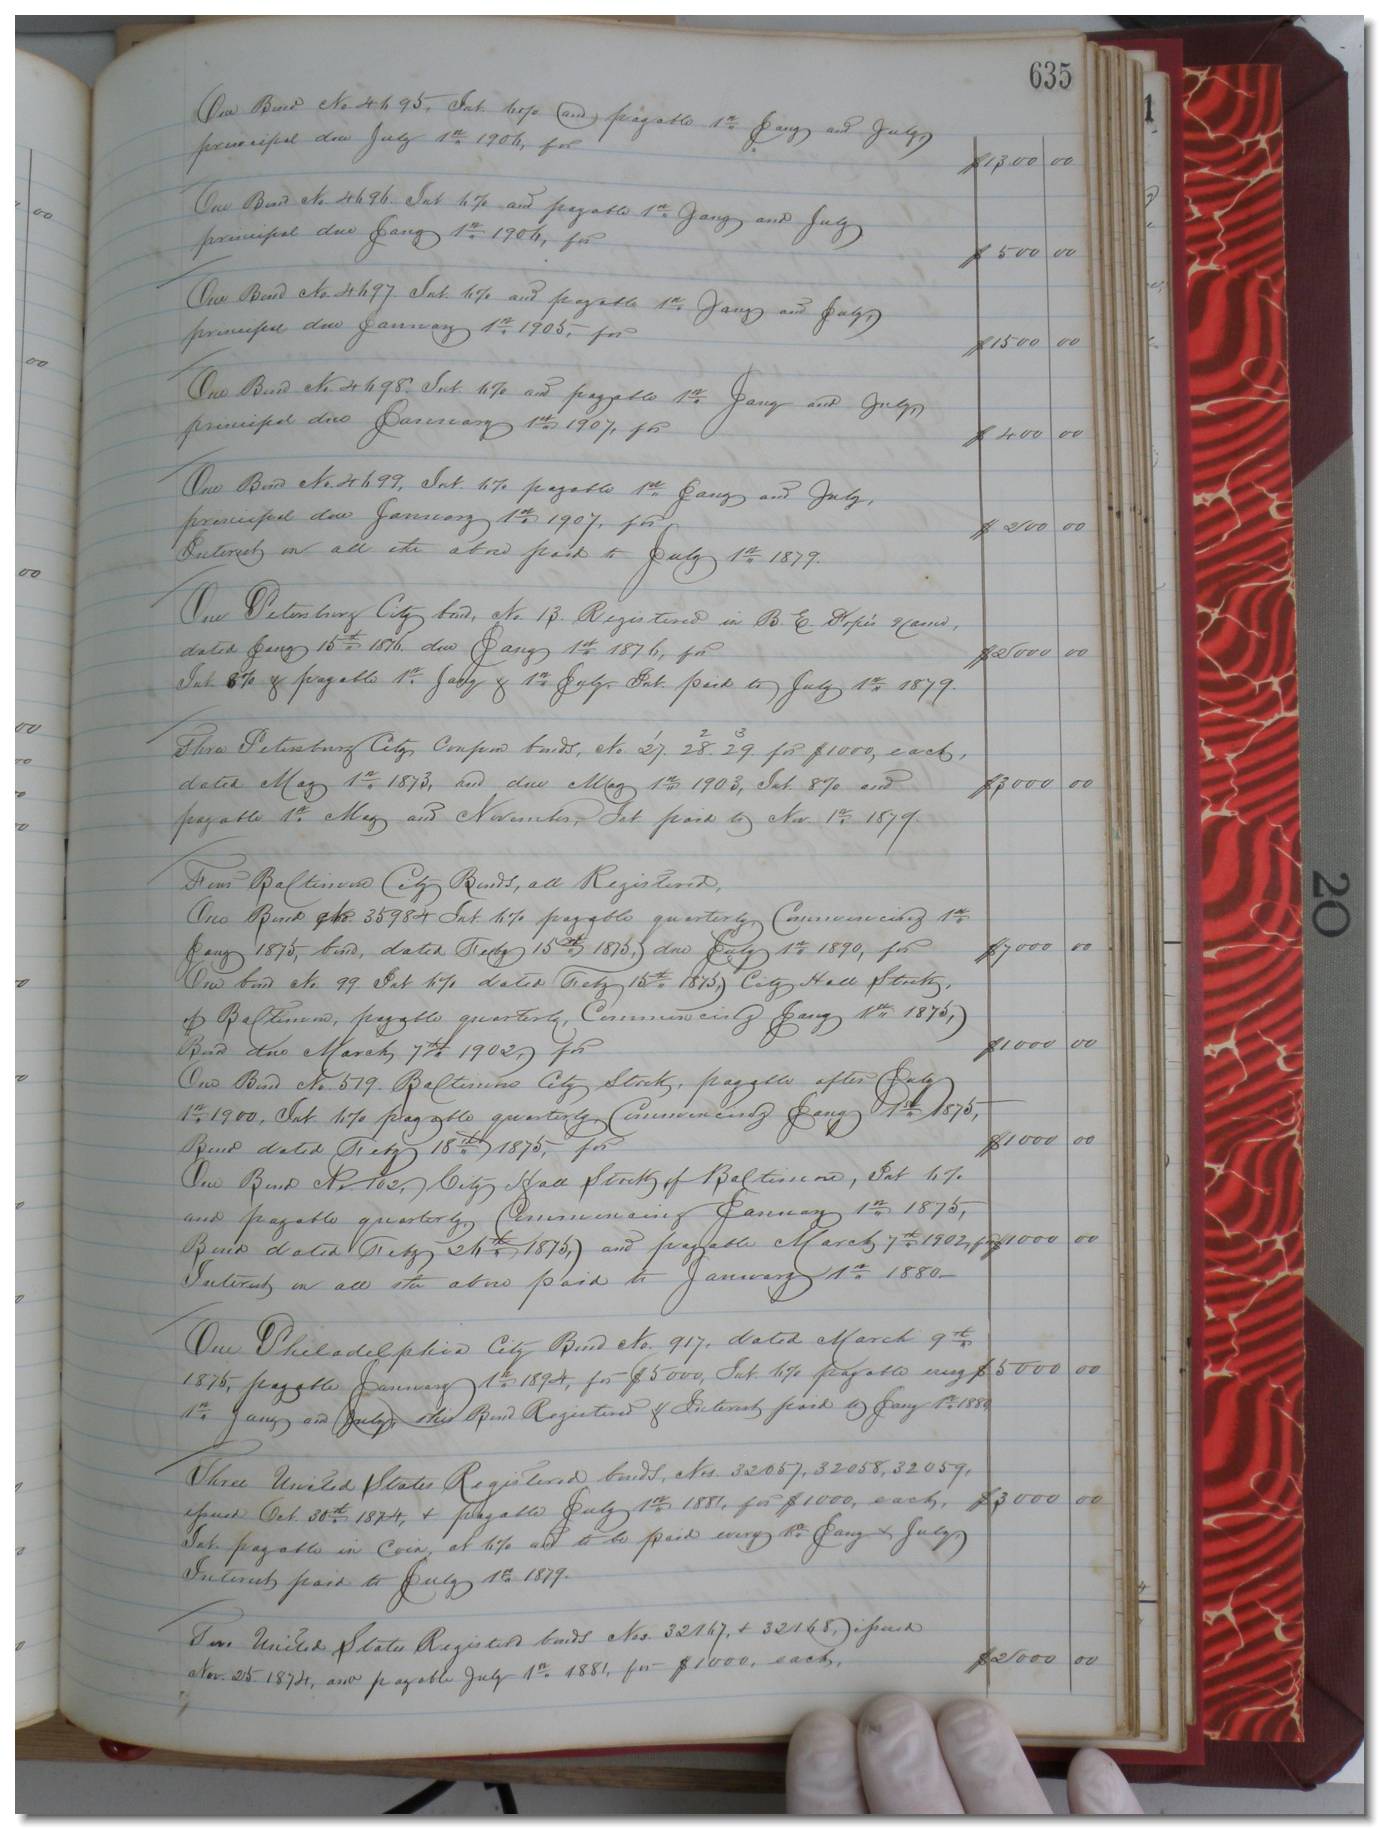 635
One Bond No. 4695. Int. 6% and payable 1st Jany and July,
principal due July 1st 1906, for
$1300 00
One Bond No. 4696. Int 6% and payable 1st Jany and July
principal due Jany 1st 1906, for
$500 00
One Bond No. 4697. Int. 6% and payable 1st Jany and July,
principal due January 1st 1905, for
$1500 00
One Bond No. 4698. Int. 6% and payable 1st Jany and July,
principal due January 1st 1907, for
$400 00
One Bond No. 4699, Int. 6% payable 1st Jany and July,
principal due January 1st 1907, for
$200 00
Interest on all the above paid to July 1st 1879.
One Petersburg City bond, No. 13. Registered in B. E. name,
dated Jany 15th 1876 due Jany 1st 1876, for
$2000 00
Int. 8% & payable 1st Jany & 1st July. Int. paid to July 1st 1879.
Three Petersburg City Coupon bonds, No. 27. 28. 29. for $1000, each,
1 2 3
dated May 1st 1873, and due May 1st 1903, Int. 8% and
$3000 00
payable 1st May and November, Int paid to Nov. 1st 1879.
Four Baltimore City Bonds, all Registered,
One Bond No. 35984 Int 6% payable quarterly, Commencing 1st
Jany 1875, bond, dated Feby 15th 1875, due July 1st 1890, for
$7000 00
One bond No. 99 Int 6% dated Feby 15th 1875, City Hall Stock,
of Baltimore, payable quarterly, Commencing Jany 1st 1875,
Bond due March 7th 1902, for
$1000 00
One Bond No. 519. Baltimore City Stock, payable after July
1st 1900, Int. 6% payable quarterly, Commencing Jany 1st 1875,
Bond dated Feby 18th 1875, for
$1000 00
One Bond No. 102, City Hall Stock of Baltimore, Int 6%
and payable quarterly, Commencing January 1st 1875,
Bond dated Feby 26th 1875, and payable March 7th 1902, for $1000 00
Interest on all the above paid to January 1st 1880
One Philadelphia City Bond No. 917, dated March 9th
1875, payable January 1st 1894, for $5000, Int. 6% payable every $5000 00
1st Jany and July, this Bond Registered & Interest paid to Jany 1st 1880
Three United States Registered bonds, Nos. 32057, 32058, 32059,
issued Oct. 30th 1874, & payable July 1st 1881, for $1000, each,
$3000 00
Int. payable in Coin, at 6% and to be paid every 1st Jany & July,
Interest paid to July 1st 1879.
Two United States Registered bonds Nos. 32167, & 32168, issued
Nov. 25 1874, and payable July 1st 1881, for $1000, each,
$2000 00
20